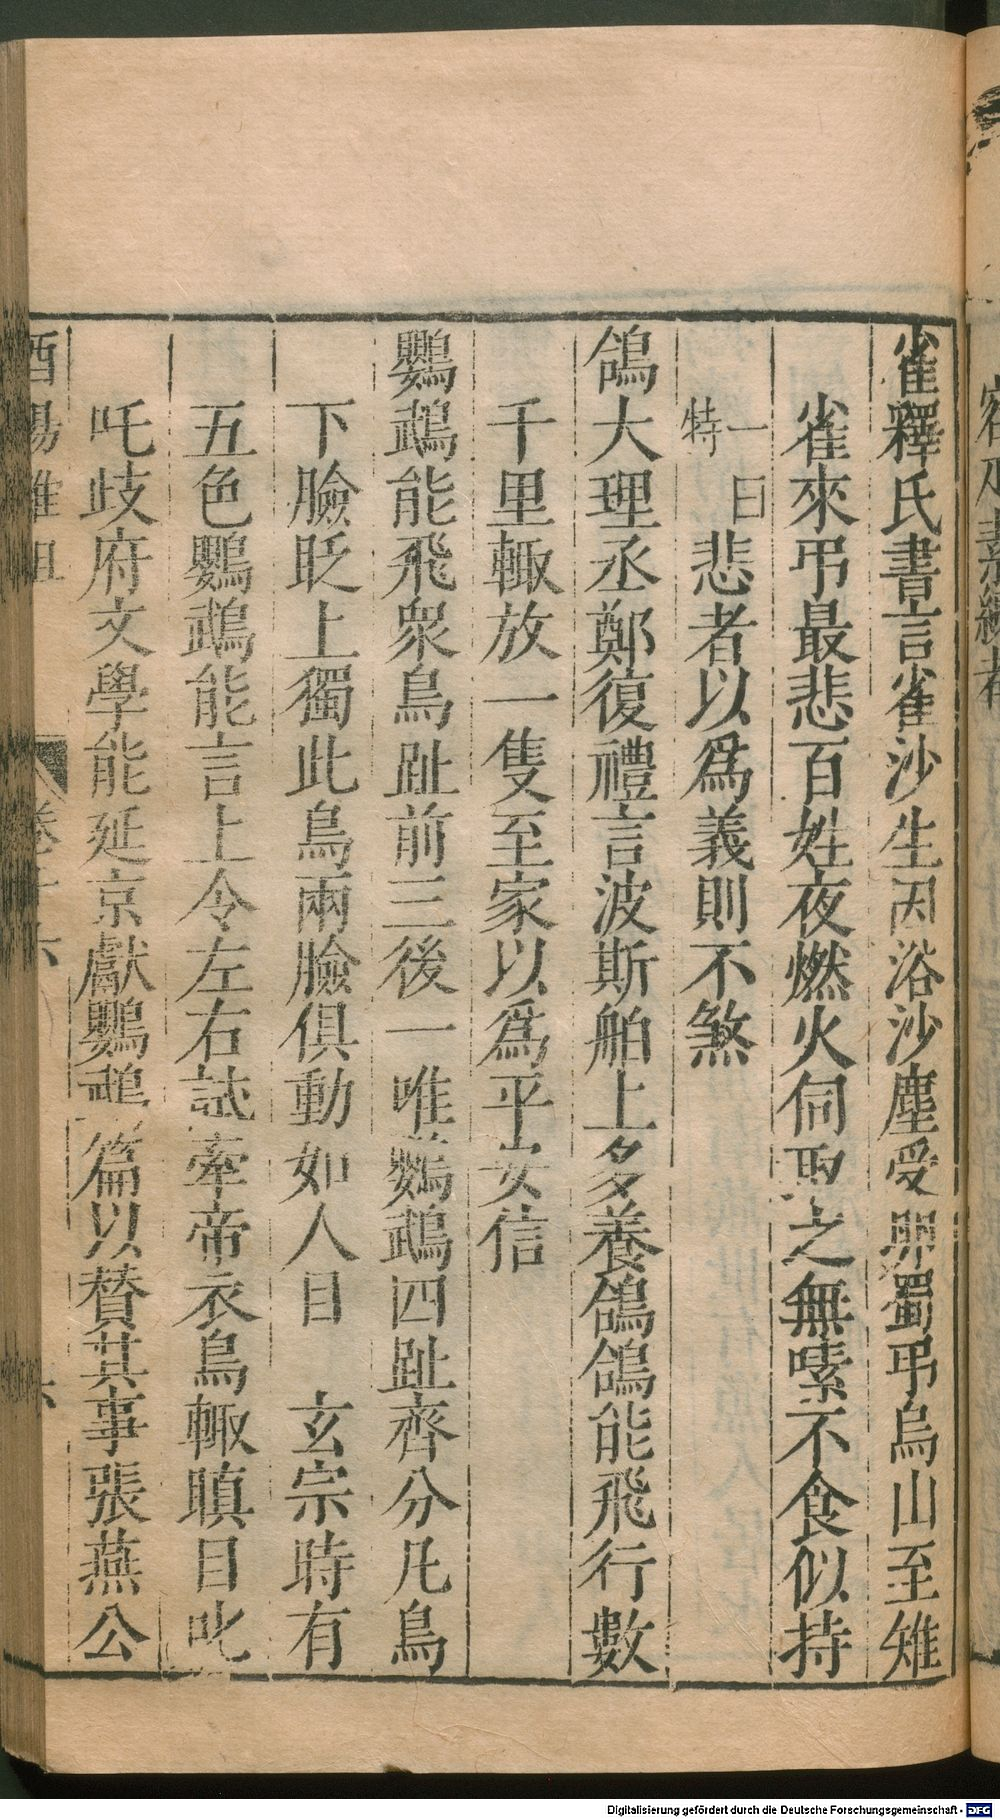 雀釋氏書言雀沙生因浴沙塵受卵蜀弔烏山至雉
雀來弔最悲百姓夜燃火伺取之無嗉不食似持
一曰特悲者以爲義則不煞
鴿大理丞鄭復禮言波斯舶上多養鴿鴿能飛行數
千里輙放一隻至家以爲平安信
鸚鵡能飛衆鳥趾前三後一唯鸚鵡四趾齊分凡鳥
下臉眨上獨此鳥兩臉俱動如人目 玄宗時有
五色鸚鵡能言上令左右試牽帝衣鳥輙瞋目叱
吒歧府文學能延京獻鸚鵡篇以贊其事張燕公
酉陽雜俎 卷十六 六
Digitalisierung gefördert durch die Deutsche Forschungsgemeinschaft - DFG